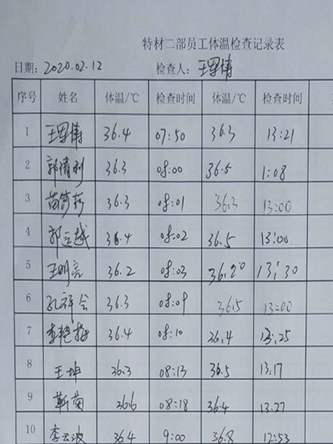 特材二部员工体温检查记录表
日期: 2020.02.12 检查人: 王军伟
序号 姓名 体温/℃ 检查时间 体温/℃ 检查时间
1 王军伟 36.4 07:50 36.3 13:21
2 郭情利 36.3 08:00 36.5 1:08
3 36.3 08:01 36.3 13:00
4 郭立越 36.4 08:02 36.5 13:00
5 王明亮 36.2 08:03 36.2° 13:30
6 孔祥会 36.3 08:09 36.5 13:00
7 李艳梅 36.4 08:10 36.4 13:25
8 王坤 36.3 08:13 36.5 13.17
9 靳菊 36.6 08:18 36.4 13.27
10 李云波 36.4 9:00 36.8 12:53